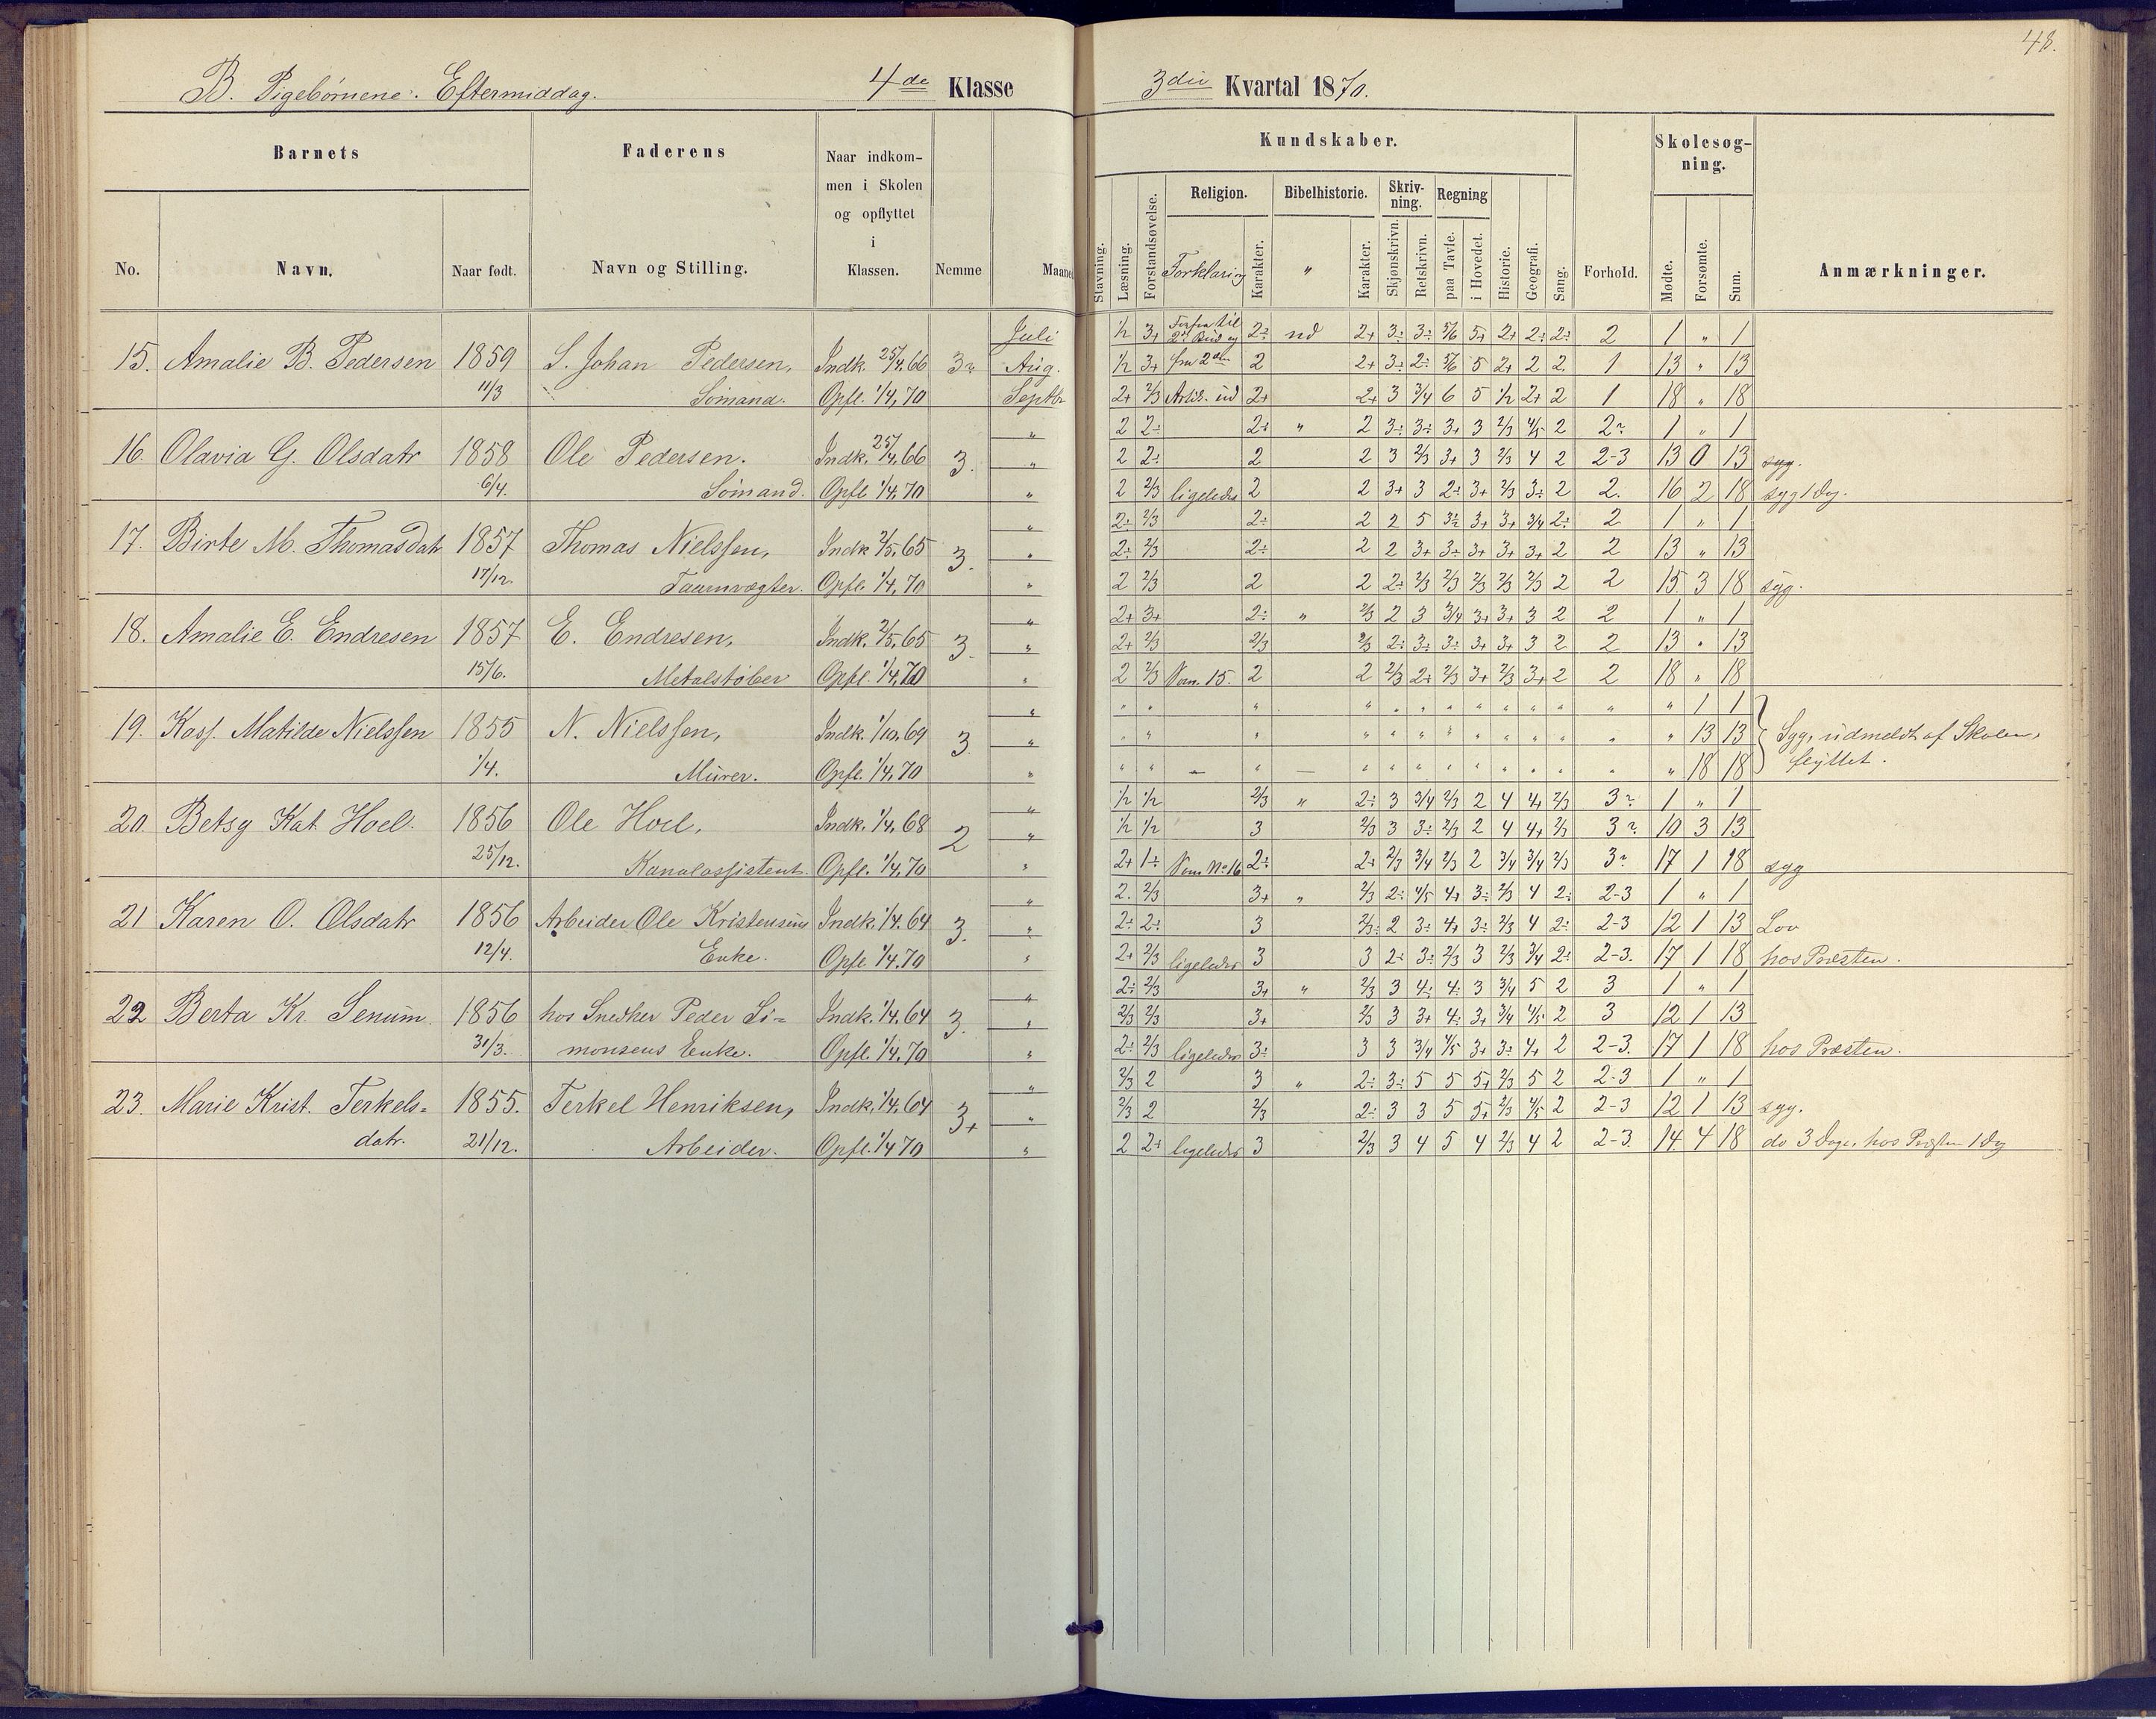 48.
B. Pigebørnene. Eftermiddag. 4de Klasse 3die Kvartal 1870.
Barnets Faderens Naar indkommen i Skolen og opflyttet i Klassen. Nemme
No. Navn. Naar født. Navn og Stilling.
Kundskaber. Skolesøgning.
Stavning. Læsning. Forstandsøvelse. Religion. Bibelhistorie. Skrivning. Regning
Forklaring Karakter. " Karakter. Skjønskrivn. Retskrivn. paa Tavle. i Hovedet. Historie. Geografi. Sang. Forhold. Mødte. Forsømte. Sum. Anmærkninger.
Juli 1/2 3+ 2÷ ud 2+ 3÷ 3÷ 5/6 5+ 2+ 2÷ 2÷ 2 1 " 1
15. Amalie B. Pedersen 1859 S. Johan Pedersen, Indk. 25/4.66 Aug. 1/2 3+ 2 2+ 3÷ 2÷ 5/6 5 2+ 2 2. 1 13 " 13
11/3 Sømand. Opfl. 1/4.70 Septbr 2+ 2/3 2+ 2+ 3 3/4 6 5 1/2 2+ 2 1 18 " 18
" 2 2÷ 2÷ " 2 3÷ 3÷ 3+ 3 2/3 4/5 2 1 " 1
16. Olavia G. Olsdatr 1858 Ole Pedersen. Indk. 25/4.66 3. " 2 2÷ 2 2 3 2/3 3+ 3 2/3 4 2 2-3 13 0 13 syg.
6/4. Sømand. Opfl. 1/4.70 " 2 2/3 ligeledes 2 2 3+ 3 2÷ 3+ 2/3 3÷ 2 2. 16 2 18 syg 1 Dg.
" 2÷ 2/3 2÷ 2 2 5 3+ 3+ 3/4 2÷ 2 1 " 1
17. Birte M. Thomasdatr 1857 Thomas Nielssen, Indk. 2/5.65 3. " 2÷ 2/3 2÷ 2 2 3+ 3÷ 3+ 3+ 3+ 2 2 13 " 13
17/12. Taarnvægter. Opfl. 1/4.70 " 2 2/3 2 2 2÷ 2/3 2/3 2/3 2/3 2/3 2 2 15. 3 18 syg.
" 2+ 3+ 2÷ " 2/3 2 3 3/4 3+ 3+ 3 2 2 1 " 1
18. Amalie E. Endresen 1857 E. Endresen, Indk. 2/5.65 3. " 2+ 2/3 2/3 2/3 2÷ 3÷ 3÷ 3+ 3+ 3 2 2 13 " 13
15/6. Metalstøber Opfl. 1/4.70 " 2 2/3 15. 2 2 2/3 2+ 2/3 3+ 2/3 3+ 2 2 18 " 18
" " " " " " " " " " " " " " " 1 1
19. Kass. Matilde Nielssen 1855 N. Nielssen, Indk. 1/10.69 3. " " " " " " " " " " " " " " " 13 13 Syg, udmeldt af Skolen,
1/4. Murer. Opfl. 1/4.70 " " " – " – " " " " " " " " " " 18 18 flyttet.
" 1/2 1/2 2/3 " 2÷ 3 3/4 2/3 2 4 4+ 2/3 1 " 1
20. Betsy Kat. Hoel. 1856 Ole Hoel, Indk. 1/4.68 2 " 1/2 1/2 3 2/3 3 3÷ 2/3 2 4 4+ 2/3 10 3 13
25/12. Kanalassistent. Opfl. 1/4.70 " 2+ 1÷ No 16 2÷ 2+ 2/3 3/4 2/3 2 3/4 3/4 2/3 17 1 18 syg
" 2. 2/3 3+ " 2/3 2÷ 4/5 4+ 3÷ 2/3 4 2÷ 2-3 1 " 1
21 Karen O. Olsdatr 1856 Arbeider Ole Kristensens Indk. 1/4.64 3. " 2÷ 2÷ 3 2/3÷ 2 3÷ 4+ 3÷ 2/3 4 2÷ 2-3 12 1 13 Lov
12/4. Enke. Opfl. 1/4.70 " 2+ 2/3 ligeledes 3 3 2÷ 3÷ 2/3 3 2/3 3/4 2÷ 2-3. 17 1 18 hos Præsten.
" 2÷ 2/3 3+ " 2/3 3 4÷ 4÷ 3 3/4 5 2 3 1 " 1
22 Berta Kr. Senum. 1856 hos Snedker Peder Si= Indk. 1/4.64 3. " 2/3 2/3 3+ 2/3 3 3+ 4÷ 3+ 3/4 4/5 2 3 12 1 13
31/3. monsens Enke. Opfl. 1/4.70 " 2÷ 2/3 ligeledes 3÷ 3 3 3/4 4/5 3+ 3÷ 4+ 2 2-3. 17 1 18 hos Præsten.
" 2/3 2 3 " 2÷ 3÷ 5 5 5+ 2/3 5 2 2-3 1 " 1
23. Marie Krist. Terkels= 1855. Terkel Henriksen, Indk. 1/4.64 3+ " 2/3 2 2/3 2÷ 3 3 5 5+ 2/3 4/5 2 2-3 12 1 13 syg.
datr. 21/12. Arbeider. Opfl. 1/4 70 " 2 2+ ligeledes 3 2/3 3 4 5 4 2/3 4 2 2-3. 14. 4 18 do 3 Dage, hos Præsten 1 Dg